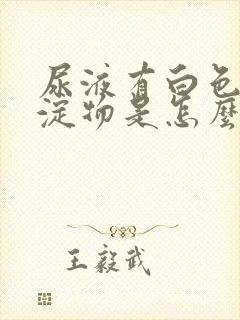 尿液有白色
淀物是怎麼
王毅武